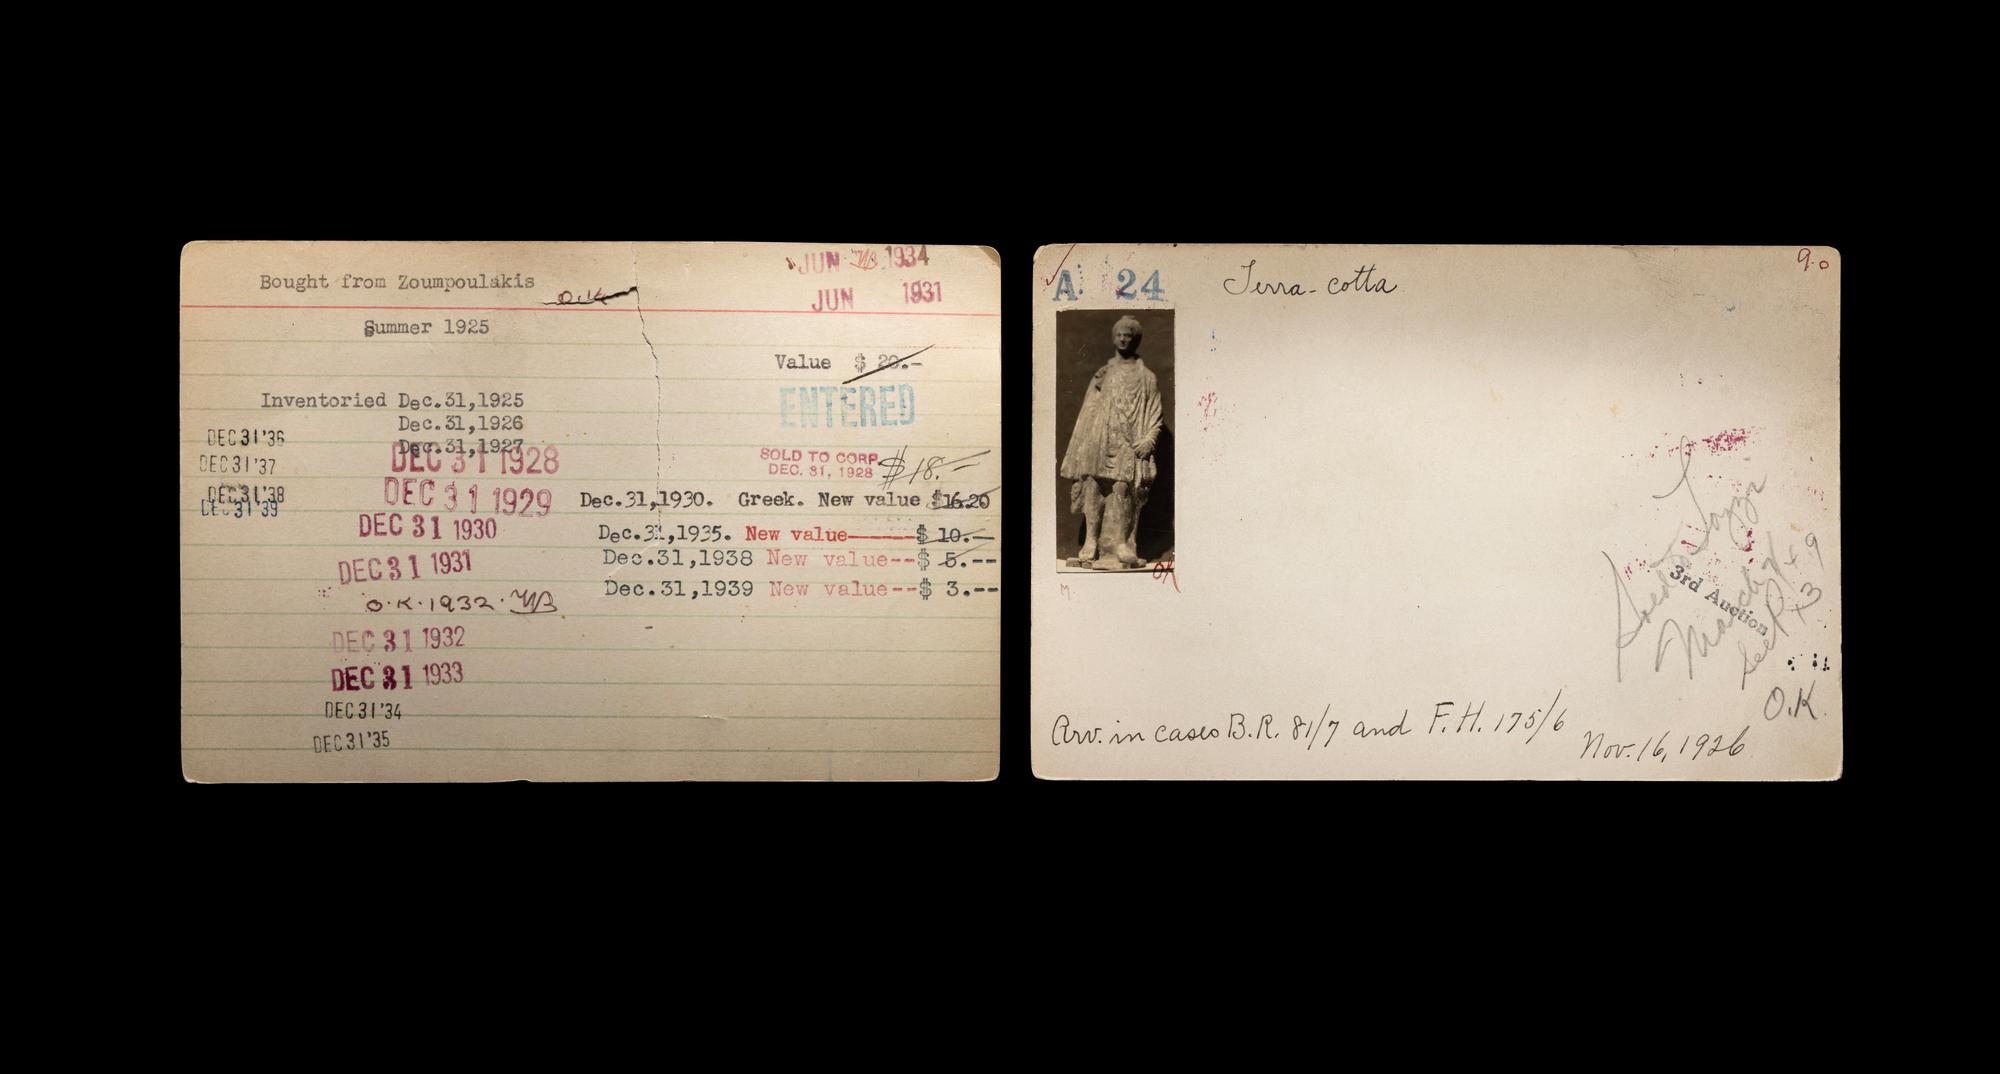 Bought from Zoumpoulakis
O.K
JUN 1934
JUN 1931
Summer 1925
Value $ 20.-
ENTERED
Inventoried Dec.31,1925
Dec.31,1926
Dec.31,1927
DEC 31 1928
SOLD TO CORP.
DEC. 31, 1928
$18.-
DEC 31'36
DEC 31'37
DEC 31'38
DEC 31'39
DEC 31 1929
Dec.31,1930. Greek. New value $16.20
DEC 31 1930
Dec.31,1935. New value------$ 10.--
Dec.31,1938 New value--$ 5.--
DEC 31 1931
Dec.31,1939 New value--$ 3.--
O.K. 1932.
DEC 31 1932
DEC 31 1933
DEC 31'34
DEC 31'35
A 24
Terra-cotta
9.0
OK
M.
3rd Auction
O.K.
Arv. in cases B.R. 81/7 and F.H. 175/6
Nov. 16, 1926